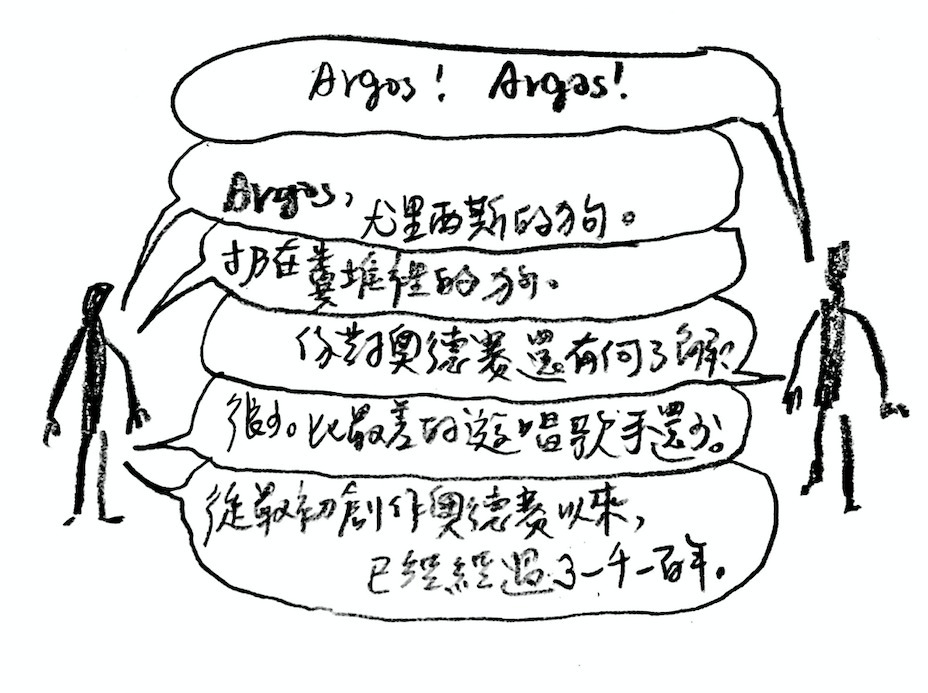 Argos! Argos!
Argos,
尤里西斯的狗。
扔在糞堆裡的狗。
你對奧德賽還有何了解?
很少。比最差的遊唱歌手還少。
從最初創作奧德賽以來,
已經經過了一千一百年。